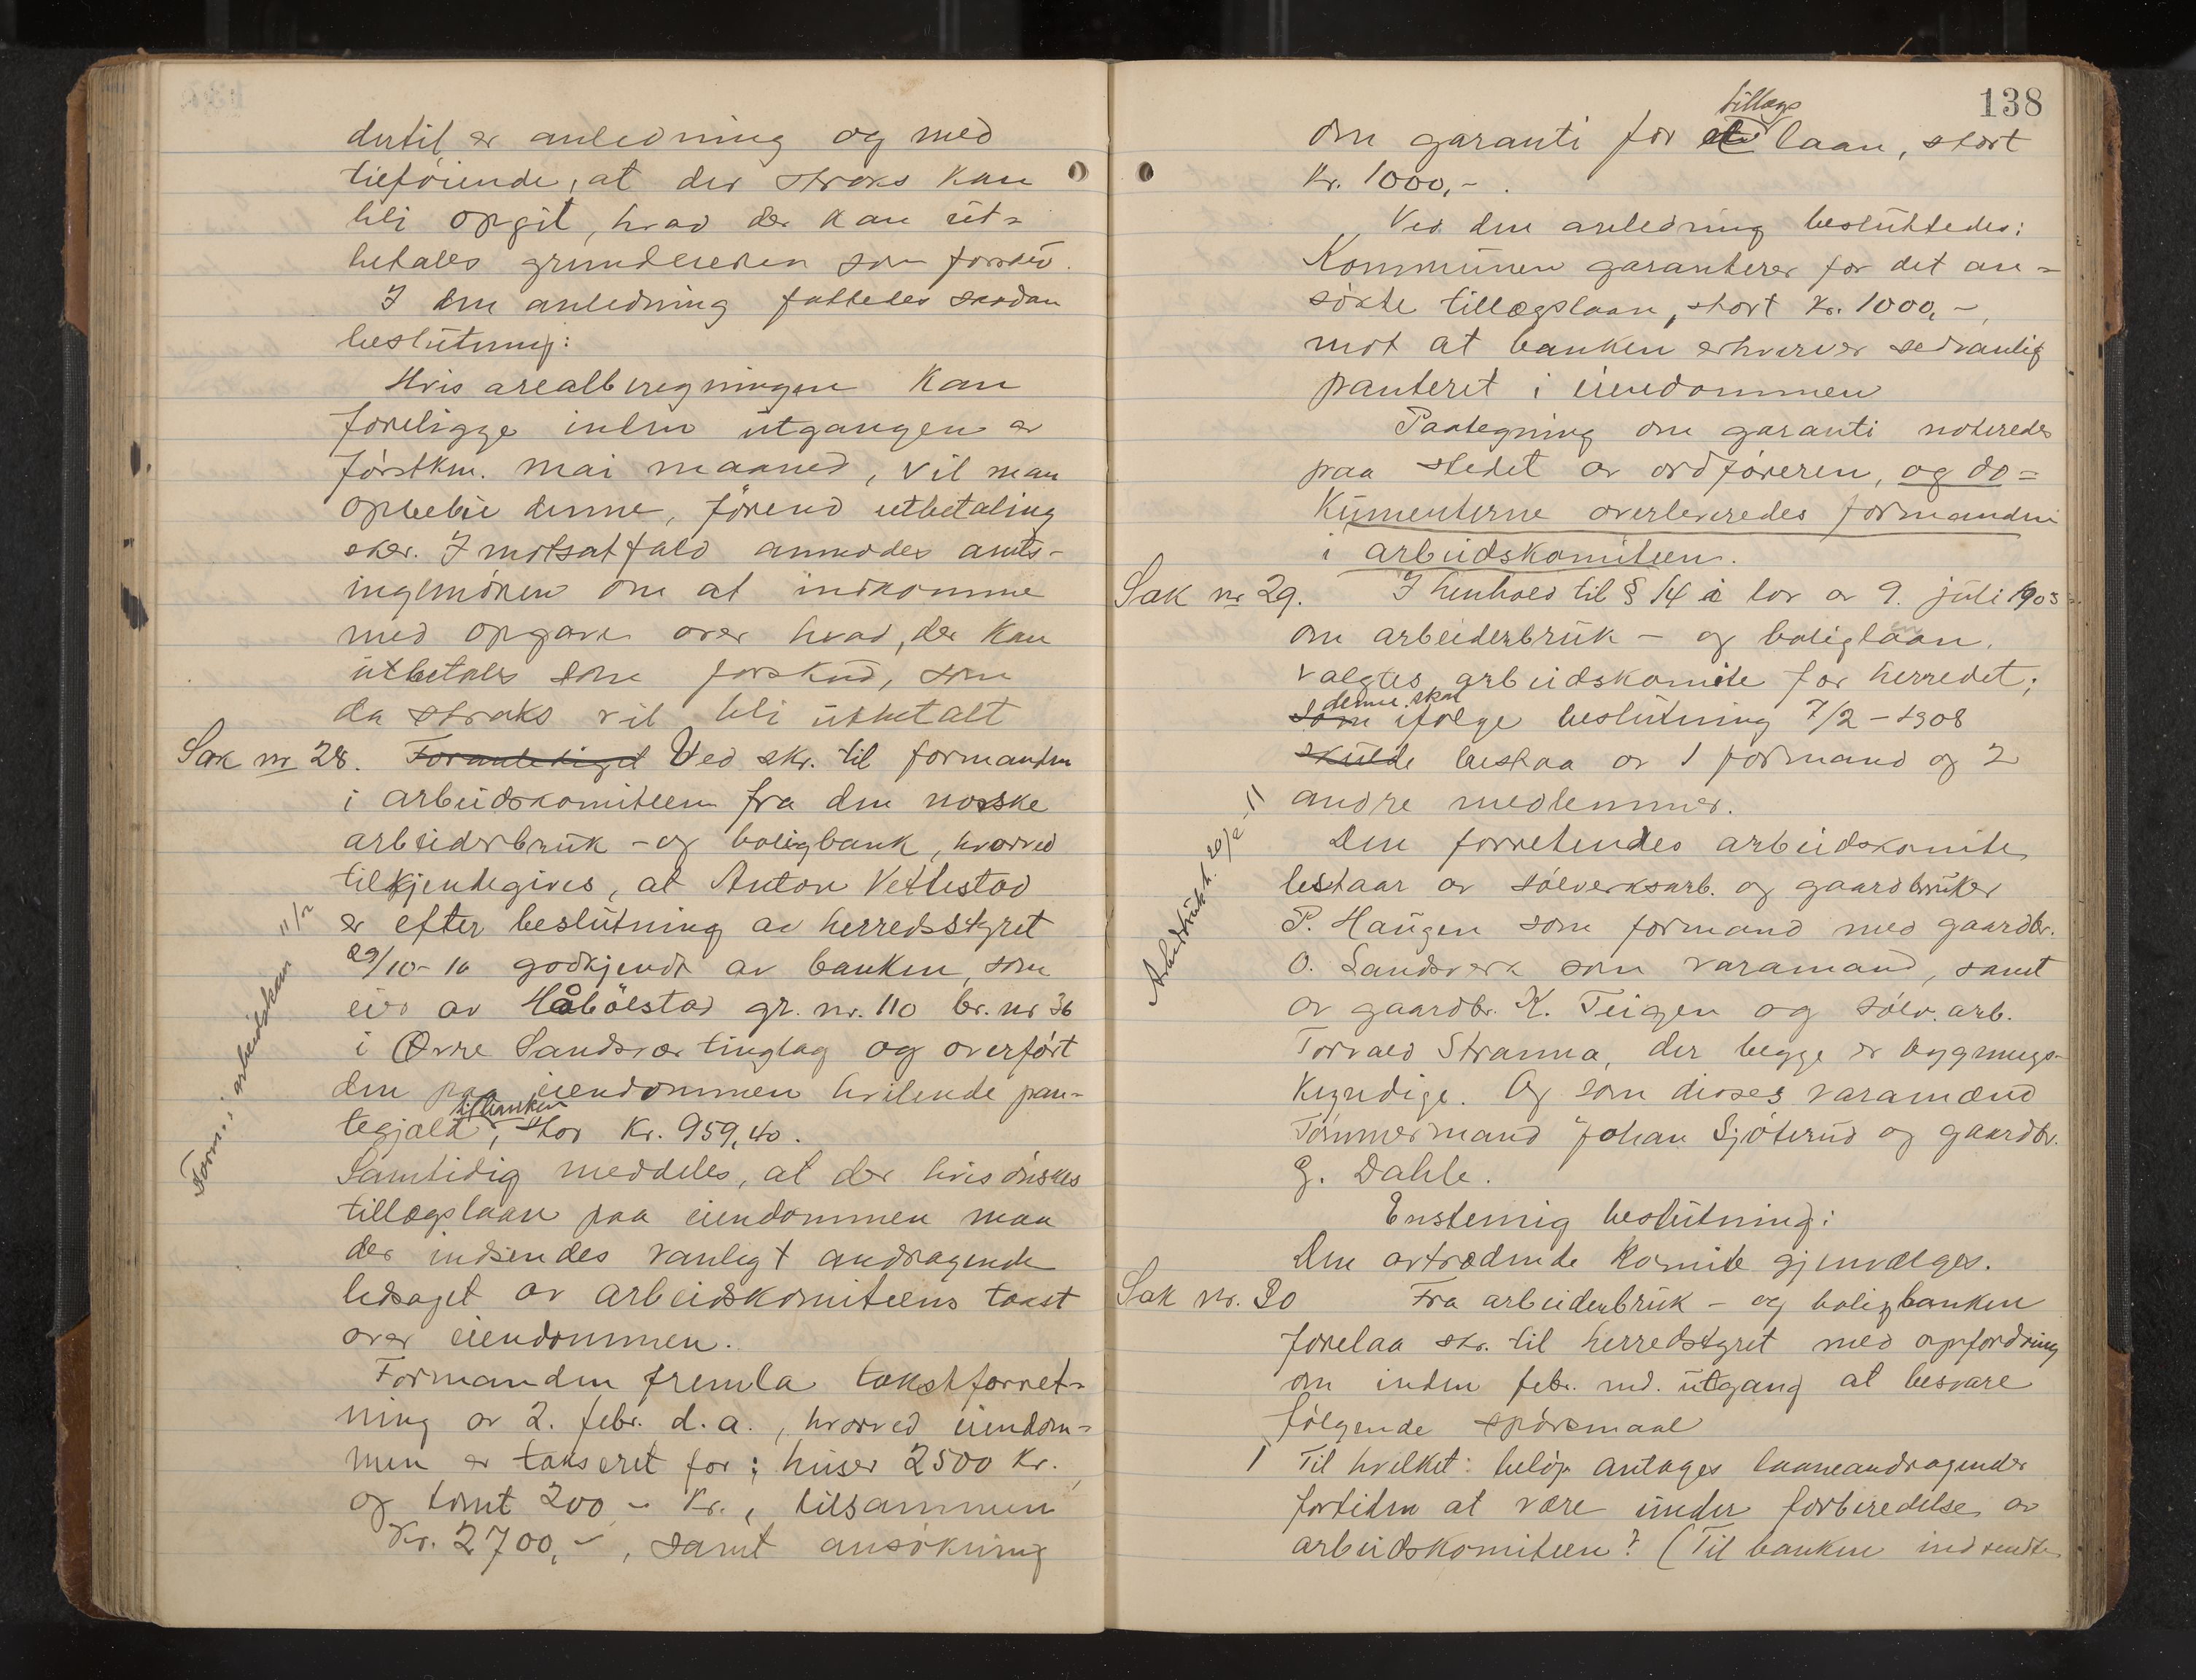 dertil er anledning og med
tilføiende, at der straks kan
bli opgit, hvad der kan ut-
betales grundeieren som forskud.
I den anledning fattedes saadan
beslutning:
Hvis arealberegningen kan
foreligge inden utgangen av
førstkm. mai maaned, vil man
opbebie denne, førend utbetaling
sker. I motsat fald anmodes amts-
ingeniøren om at indkomme
med opgave over hvad, der kan
utbetales som forskud, som
da straks vil bli utbetalt
Sak nr 28. Foranlediget Ved skr. til formanden
i arbeidskomiteen fra den norske
arbeiderbruk - og boligbank, hvorved
tilkjendegives, at Anton Vettestad
er efter beslutning av herredsstyret
29/10-10 godkjendt av banken, som
eier av Håbölstad gr. nr. 110 br. nr 36
i Øvre Sandsvær tinglag og overført
den paa eiendommen hvilende pan-
til banken
tegjæld, stor Kr. 959,40.
Samtidig meddeles, at der hvis ønskes
tillægslaan paa eiendommen maa
der indsendes vanligt andragende
ledsaget av arbeidskomiteens takst
over eiendommen.
Formanden fremla takstforret-
ning av 2. febr. d.a., hvorved eiendom-
men er takseret for: huser 2500 Kr.
og tomt 200,- Kr., tilsammen
Kr. 2700,-, samt ansøkning
Form. i arbeidskom 11/2
138
tillægs
om garanti for et laan, stort
Kr. 1000,-.
Ved den anledning besluttedes:
Kommunen garanterer for det an-
søkte tillægslaan, stort Kr. 1000,-,
mot at banken erhverver sedvanlig
panteret i eiendommen
Paategning om garanti noteredes
paa stedet av ordføreren, og do-
kumenterne overleveredes formanden
i arbeidskomiteen.
Sak nr 29. I henhold til § 14 i lov av 9. juli 1903
om arbeiderbruk - og boliglaan,
valgtes arbeidskomite for herredet;
denne skal
som ifølge beslutning 7/2 - 1908
skulde bestaa av 1 formand og 2
andre medlemmer.
Den forretendes arbeidskomite
bestaar av sølverksarb. og gaardbruker
P. Haugen som formand med gaardbr.
O. Landsverk som varamand, samt
av gaardbr. K. Teigen og sølv. arb.
Torvald Stranna, der begge er bygnings-
kyndige. Og som disses varamænd
Tømmermand Johan Sjøterud og gaardbr.
G. Dahle.
Enstemig beslutning:
Den avtrædende komite gjenvælges.
Arbeidsbruk b. 20/2-11
Sak nr. 30 Fra arbeiderbruk - og boligbanken
forelaa skr. til herredstyret med opfordring
om inden febr. md. utgang at besvare
følgende spørsmaal
1 Til hvilket beløp antages laaneandragender
fortiden at være under forberedelse av
arbeidskomiteen? (Til banken indsendte